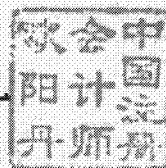 中国注册
会计师
欧阳丹